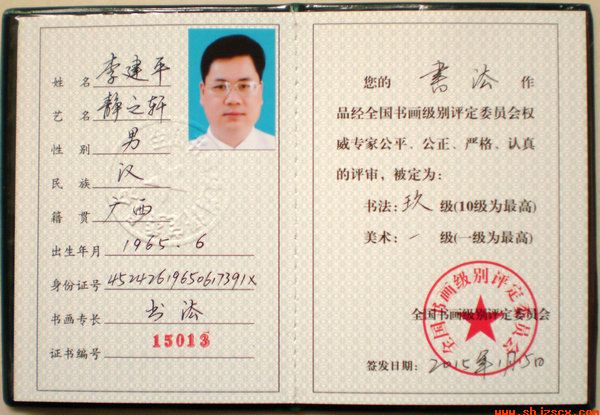 姓名 李建平
艺名 静之轩
性别 男
民族 汉
籍贯 广西
出生年月 1965.6
身份证号 45242619650617391X
书画专长 书法
证书编号 15013
您的 書法 作
品经全国书画级别评定委员会权
威专家公平、公正、严格、认真
的评审，被定为：
书法：玖 级(10级为最高)
美术：一 级(一级为最高)
全国书画级别评定委员会
全国书画级别评定委员会
签发日期：2015年1月15日
www.shjzscx.com